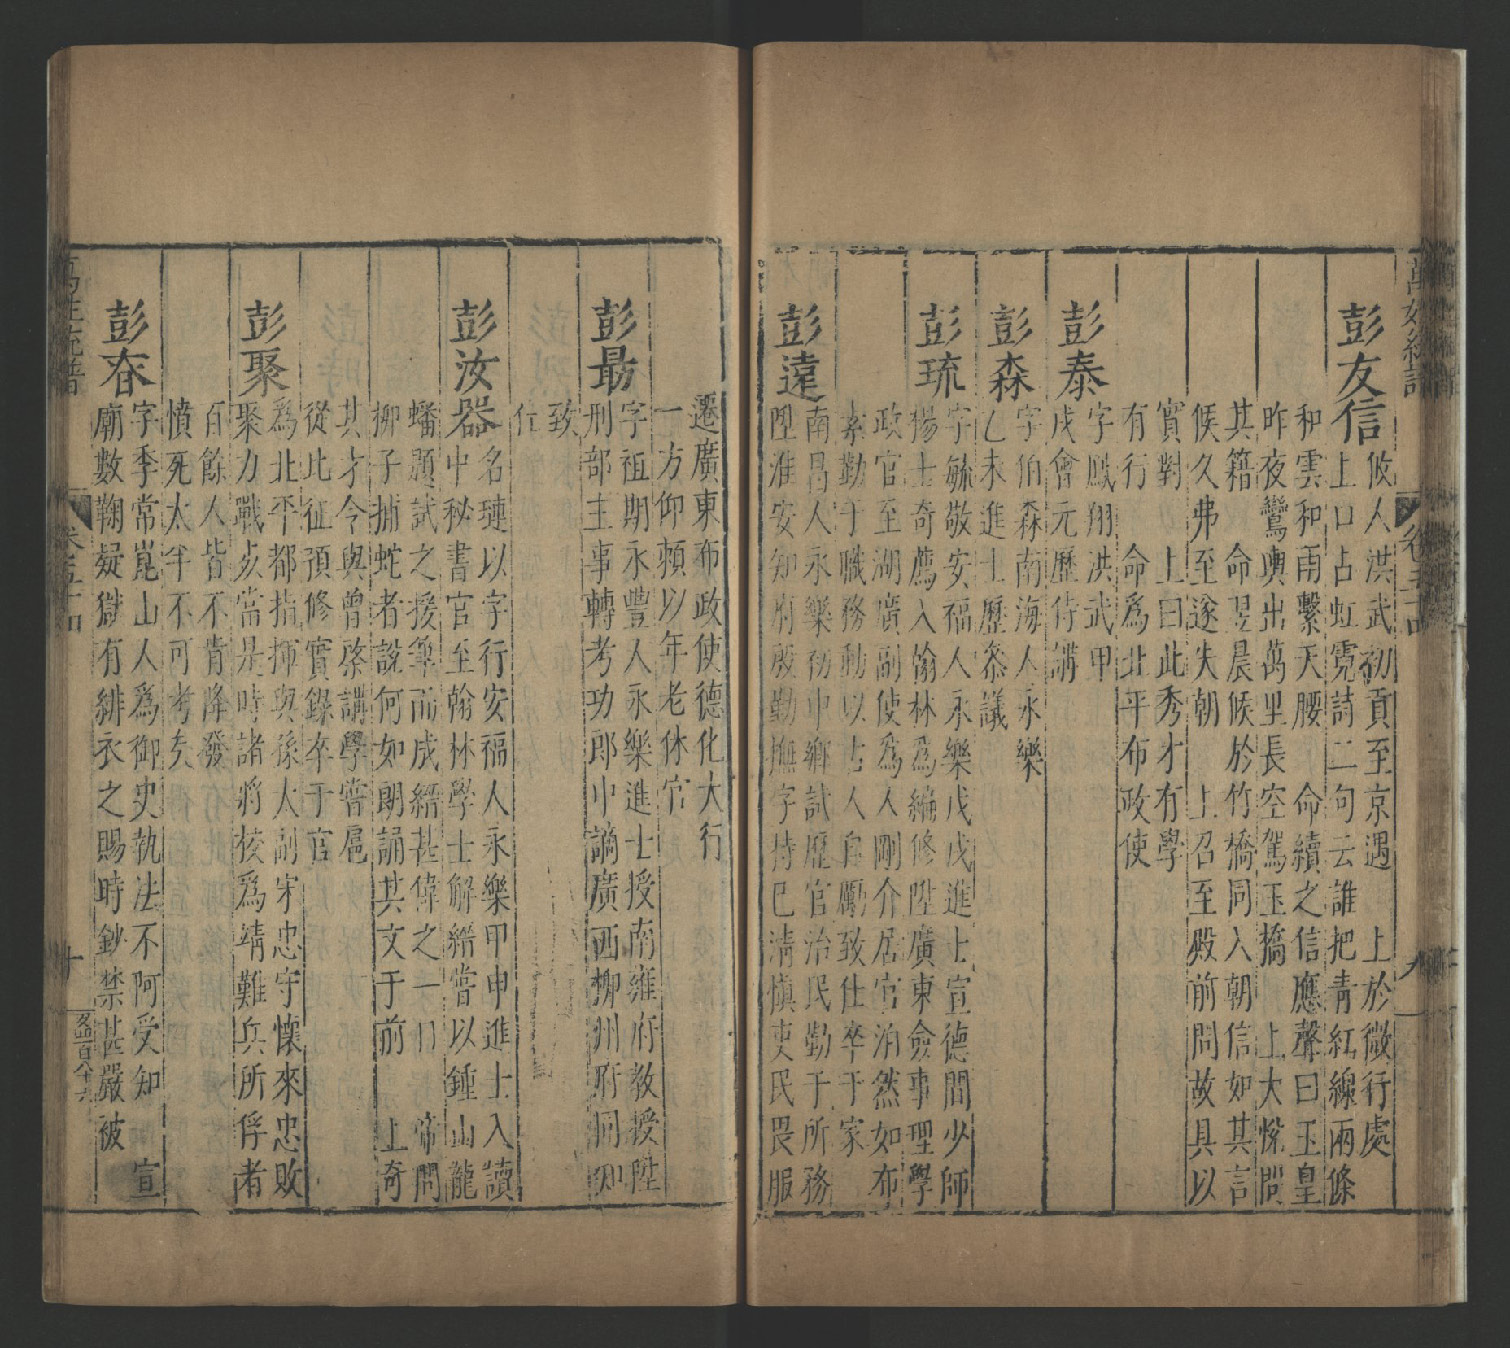 萬姓統譜
卷五十四
九
彭友信
攸人洪武初貢至京遇　上於微行處
上口占虹霓詩二句云誰把青紅線兩條
和雲和雨繫天腰　命續之信應聲曰玉皇
昨夜鸞輿出萬里長空駕玉橋　上大悅問
其籍　命翌晨候於竹橋同入朝信如其言
候久弗至遂失朝　上召至殿前問故具以
實對　上曰此秀才有學
有行　命爲北平布政使
彭泰
字鳳翔洪武甲
戌會元歷侍講
彭森
字伯森南海人永樂
乙未進士歷叅議
彭琉
字毓敬安福人永樂戊戌進士宣德間少師
楊士奇薦入翰林爲編修陞廣東僉事理學
政官至湖廣副使爲人剛介居官泊然如布
素勤于職務動以古人自勵致仕卒于家
彭遠
南昌人永樂初中鄉試歷官治民勤于所務
陞淮安知府殷勤撫字持已清慎吏民畏服
遷廣東布政使德化大行
一方仰頼以年老休官
彭最
字祖期永豐人永樂進士授南雍府教授陞
刑部主事轉考功郎中謫廣西柳州府同知
致
仕
彭汝器
名璉以字行安福人永樂甲申進士入讀
中秘書官至翰林學士解縉嘗以鍾山龍
蟠題試之援筆而成縉甚偉之一日　帝問
柳子捕蛇者說何如朗誦其文于前　上奇
其才令與曾棨講學嘗扈
從北征預修實錄卒于官
彭聚
爲北平都指揮與孫太副宋忠守懷來忠敗
聚力戰歿當是時諸將校爲靖難兵所俘者
百餘人皆不肯降發
憤死太半不可考矣
彭春
字季常崑山人爲御史執法不阿受知　宣
廟數鞠疑獄有緋衣之賜時鈔禁甚嚴被
萬姓統譜
卷五十四
十